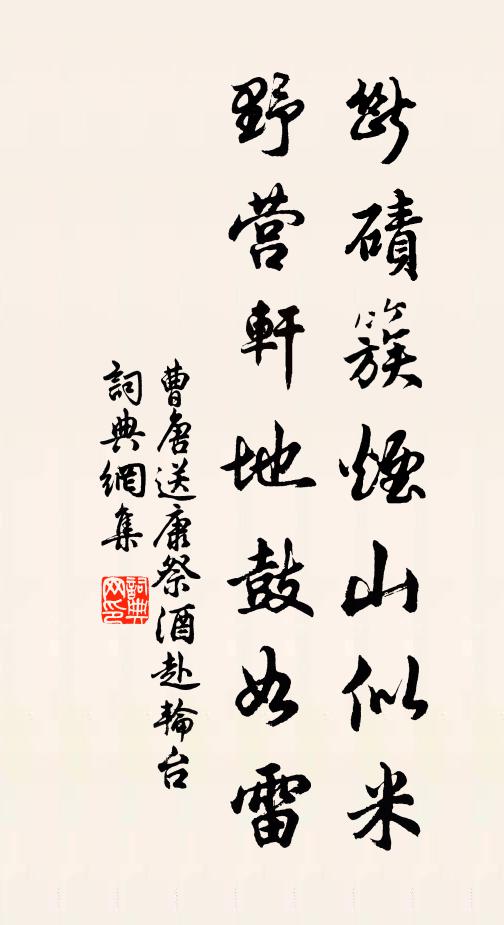 斷磧簇煙山似米
野營軒地鼓如雷
曹唐送康祭酒赴輪台
詞典網集
詞典網印